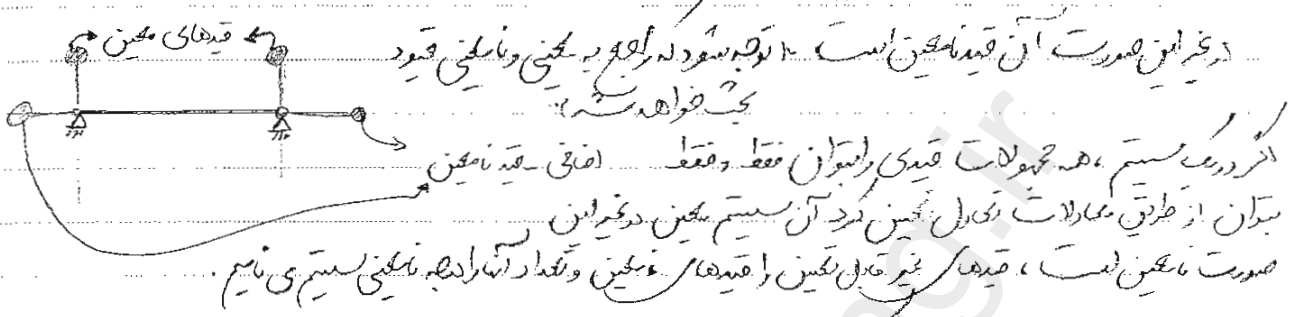 قیدهای معین
در غیر این صورت آن قید نامعین است (توجه شود که راجع به معینی و نامعینی قیود
بحث خواهد شد)
اگر در یک سیستم، همه مجهولات قیدی را بتوان فقط و فقط
اضافی - قید نامعین
بتوان از طریق معادلات تعادل تعیین کرد آن سیستم معین در غیر این
صورت نامعین است، قیدهای غیر قابل تعیین را قیدهای نامعین و تعداد آنها را درجه نامعینی سیستم می نامیم.